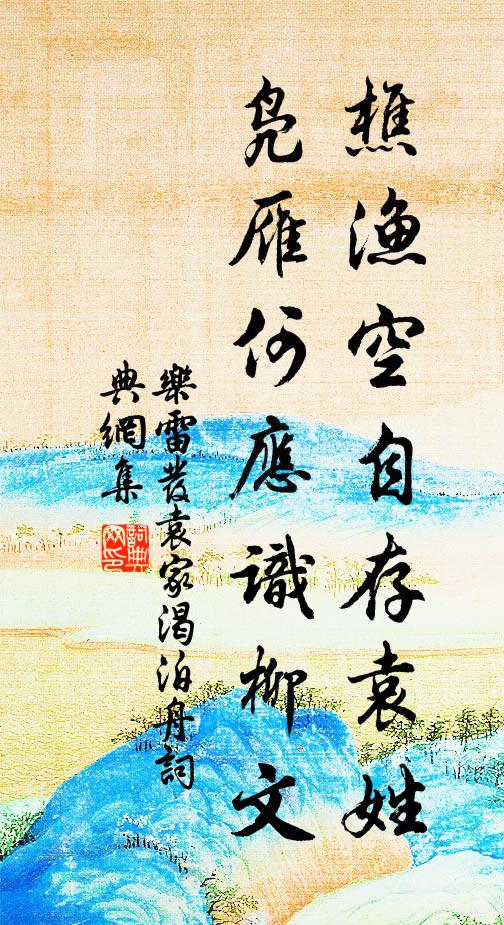 樵漁空自存袁姓
鳧雁何應識柳文
樂雷發袁家渴泊舟詞
典網集
詞典